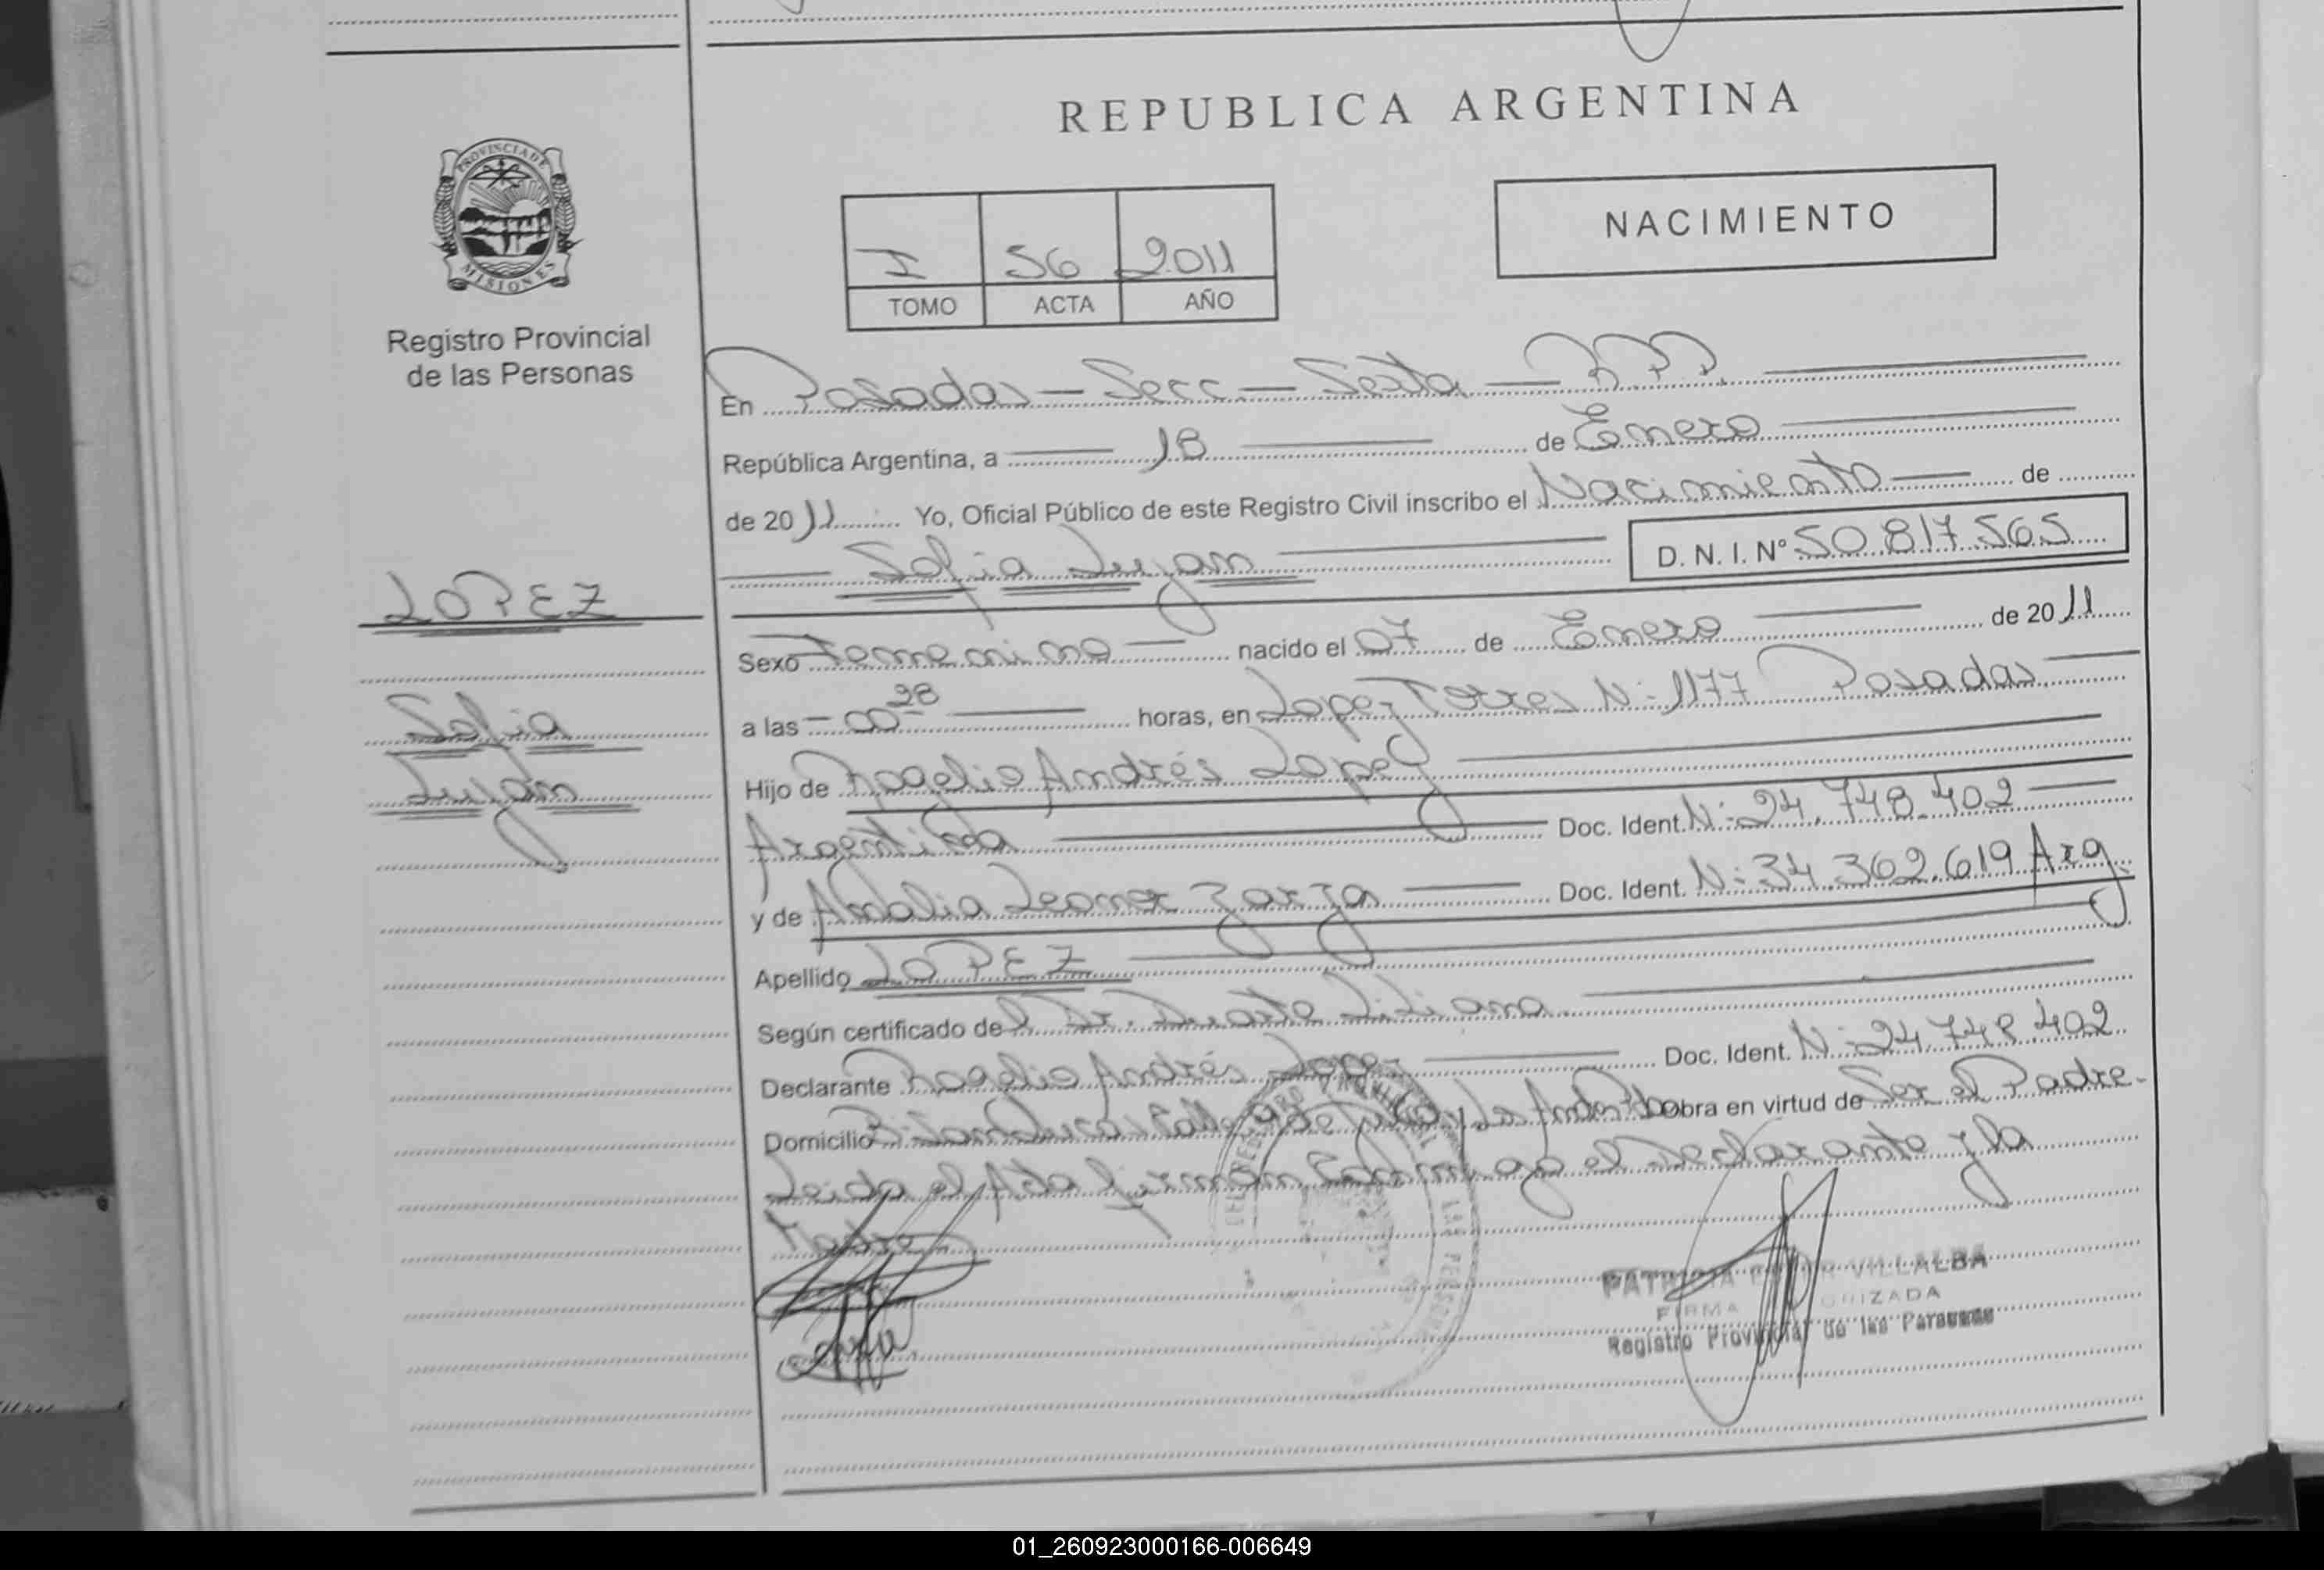 REPUBLICA ARGENTINA
PROVINCIA DE
MISIONES
NACIMIENTO
I 56 2011
TOMO ACTA AÑO
Registro Provincial
de las Personas
En Posadas - Secc - Sexta - R.P.P.
República Argentina, a 18 de Enero
de 2011 Yo, Oficial Público de este Registro Civil inscribo el Nacimiento de
Sofia Lujan D. N. I. N° 50.817.565
LOPEZ
Sofia
Lujan
Sexo Femenino nacido el 07 de Enero de 2011
a las 00 28 horas, en Lopez Torres N: 1177 Posadas
Hijo de Rogelio Andrés Lopez
Argentina Doc. Ident. N: 24.748.402
y de Analia Leonor Zarza Doc. Ident. N: 34.362.619 Arg.
Apellido LOPEZ
Según certificado de Liliana
Declarante Rogelio Andrés Lopez Doc. Ident. N: 24.748.402
Domicilio Obra en virtud de Ser el Padre.
Leida el Acta la firman el declarante y la
Madre
PATRICIA VILLALBA
FIRMA AUTORIZADA
Registro Provincial de las Personas
01_260923000166-006649